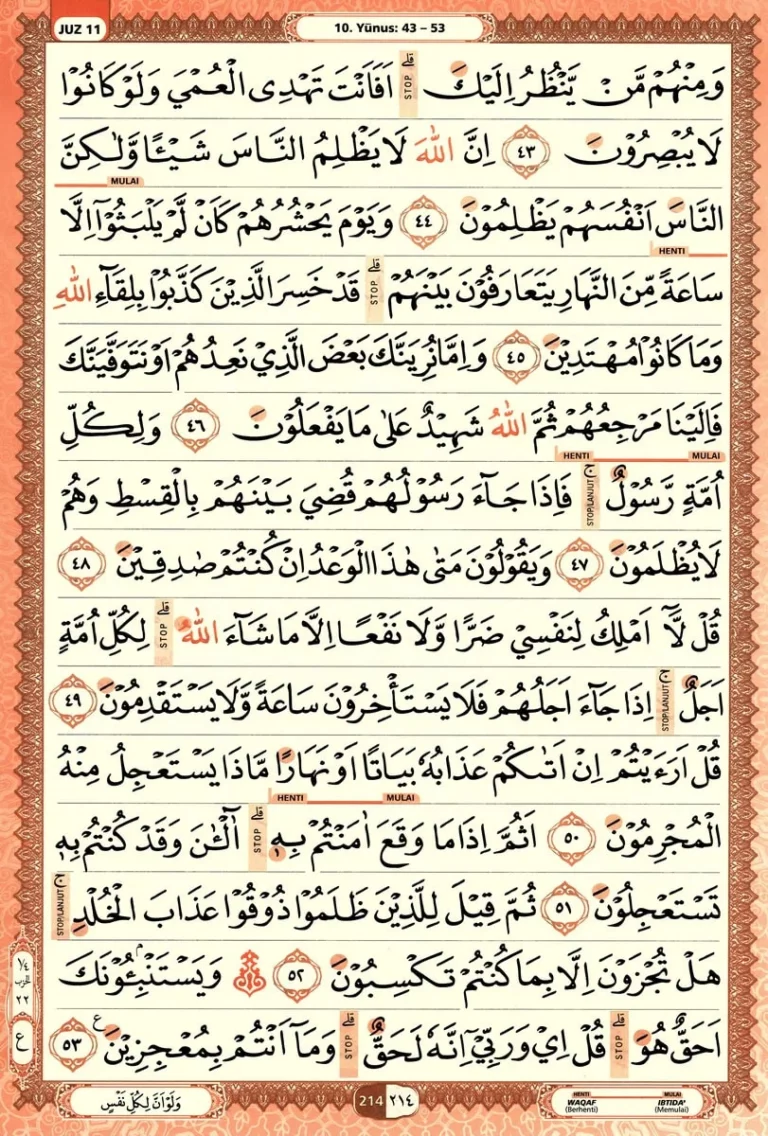 JUZ 11
10. Yūnus: 43 – 53
وَمِنْهُمْ مَّنْ يَّنْظُرُ اِلَيْكَ ۗ STOP اَفَاَنْتَ تَهْدِى الْعُمْيَ وَلَوْ كَانُوْا
لَا يُبْصِرُوْنَ ٤٣ اِنَّ اللّٰهَ لَا يَظْلِمُ النَّاسَ شَيْـًٔا وَّلٰكِنَّ
MULAI
النَّاسَ اَنْفُسَهُمْ يَظْلِمُوْنَ ٤٤ وَيَوْمَ يَحْشُرُهُمْ كَاَنْ لَّمْ يَلْبَثُوْٓا اِلَّا
HENTI
سَاعَةً مِّنَ النَّهَارِ يَتَعَارَفُوْنَ بَيْنَهُمْ ۗ STOP قَدْ خَسِرَ الَّذِيْنَ كَذَّبُوْا بِلِقَاۤءِ اللّٰهِ
وَمَا كَانُوْا مُهْتَدِيْنَ ٤٥ وَاِمَّا نُرِيَنَّكَ بَعْضَ الَّذِيْ نَعِدُهُمْ اَوْ نَتَوَفَّيَنَّكَ
فَاِلَيْنَا مَرْجِعُهُمْ ثُمَّ اللّٰهُ شَهِيْدٌ عَلٰى مَا يَفْعَلُوْنَ ٤٦ وَلِكُلِّ
HENTI MULAI
اُمَّةٍ رَّسُوْلٌ ۚ STOP/LANJUT فَاِذَا جَاۤءَ رَسُوْلُهُمْ قُضِيَ بَيْنَهُمْ بِالْقِسْطِ وَهُمْ
لَا يُظْلَمُوْنَ ٤٧ وَيَقُوْلُوْنَ مَتٰى هٰذَا الْوَعْدُ اِنْ كُنْتُمْ صٰدِقِيْنَ ٤٨
قُلْ لَّآ اَمْلِكُ لِنَفْسِيْ ضَرًّا وَّلَا نَفْعًا اِلَّا مَا شَاۤءَ اللّٰهُ ۗ STOP لِكُلِّ اُمَّةٍ
اَجَلٌ ۚ STOP/LANJUT اِذَا جَاۤءَ اَجَلُهُمْ فَلَا يَسْتَأْخِرُوْنَ سَاعَةً وَّلَا يَسْتَقْدِمُوْنَ ٤٩
قُلْ اَرَءَيْتُمْ اِنْ اَتٰىكُمْ عَذَابُهٗ بَيَاتًا اَوْ نَهَارًا مَّاذَا يَسْتَعْجِلُ مِنْهُ
HENTI MULAI
الْمُجْرِمُوْنَ ٥٠ اَثُمَّ اِذَا مَا وَقَعَ اٰمَنْتُمْ بِهٖ ۗ STOP اٰۤلْـٰٔنَ وَقَدْ كُنْتُمْ بِهٖ
تَسْتَعْجِلُوْنَ ٥١ ثُمَّ قِيْلَ لِلَّذِيْنَ ظَلَمُوْا ذُوْقُوْا عَذَابَ الْخُلْدِ ۚ STOP/LANJUT
هَلْ تُجْزَوْنَ اِلَّا بِمَا كُنْتُمْ تَكْسِبُوْنَ ٥٢ وَيَسْتَنْۢبِـُٔوْنَكَ
اَحَقٌّ هُوَ ۗ STOP قُلْ اِيْ وَرَبِّيْٓ اِنَّهٗ لَحَقٌّ ۗ STOP وَمَآ اَنْتُمْ بِمُعْجِزِيْنَ ع ٥٣
١/٤
الحزب
٢٢
ع
وَلَوْ اَنَّ لِكُلِّ نَفْسٍ
214 ٢١٤
HENTI MULAI
WAQAF IBTIDA'
(Berhenti) (Memulai)